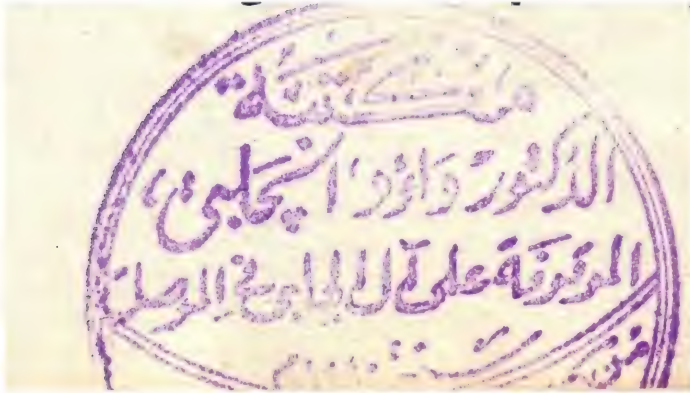 مكتبة
الدكتور داؤد الچلبي
الموقوفة على آل الچلبي في الموصل